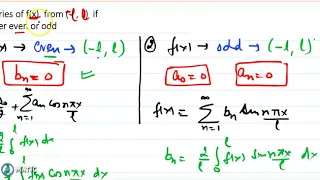 ries of f(x) from (-l, l) if
er ever. or odd
→ even → (-l, l)
bn = 0
+ Σ an cos nπx/l
n=1
∞
∫ f(x) dx
0
l
∫ f(x) cos nπx/l dx
② f(x) → odd → (-l, l)
a0 = 0 an = 0
f(x) = Σ bn sin nπx/l
n=1
∞
bn = 2/l ∫ f(x) sin nπx/l dx
0
l